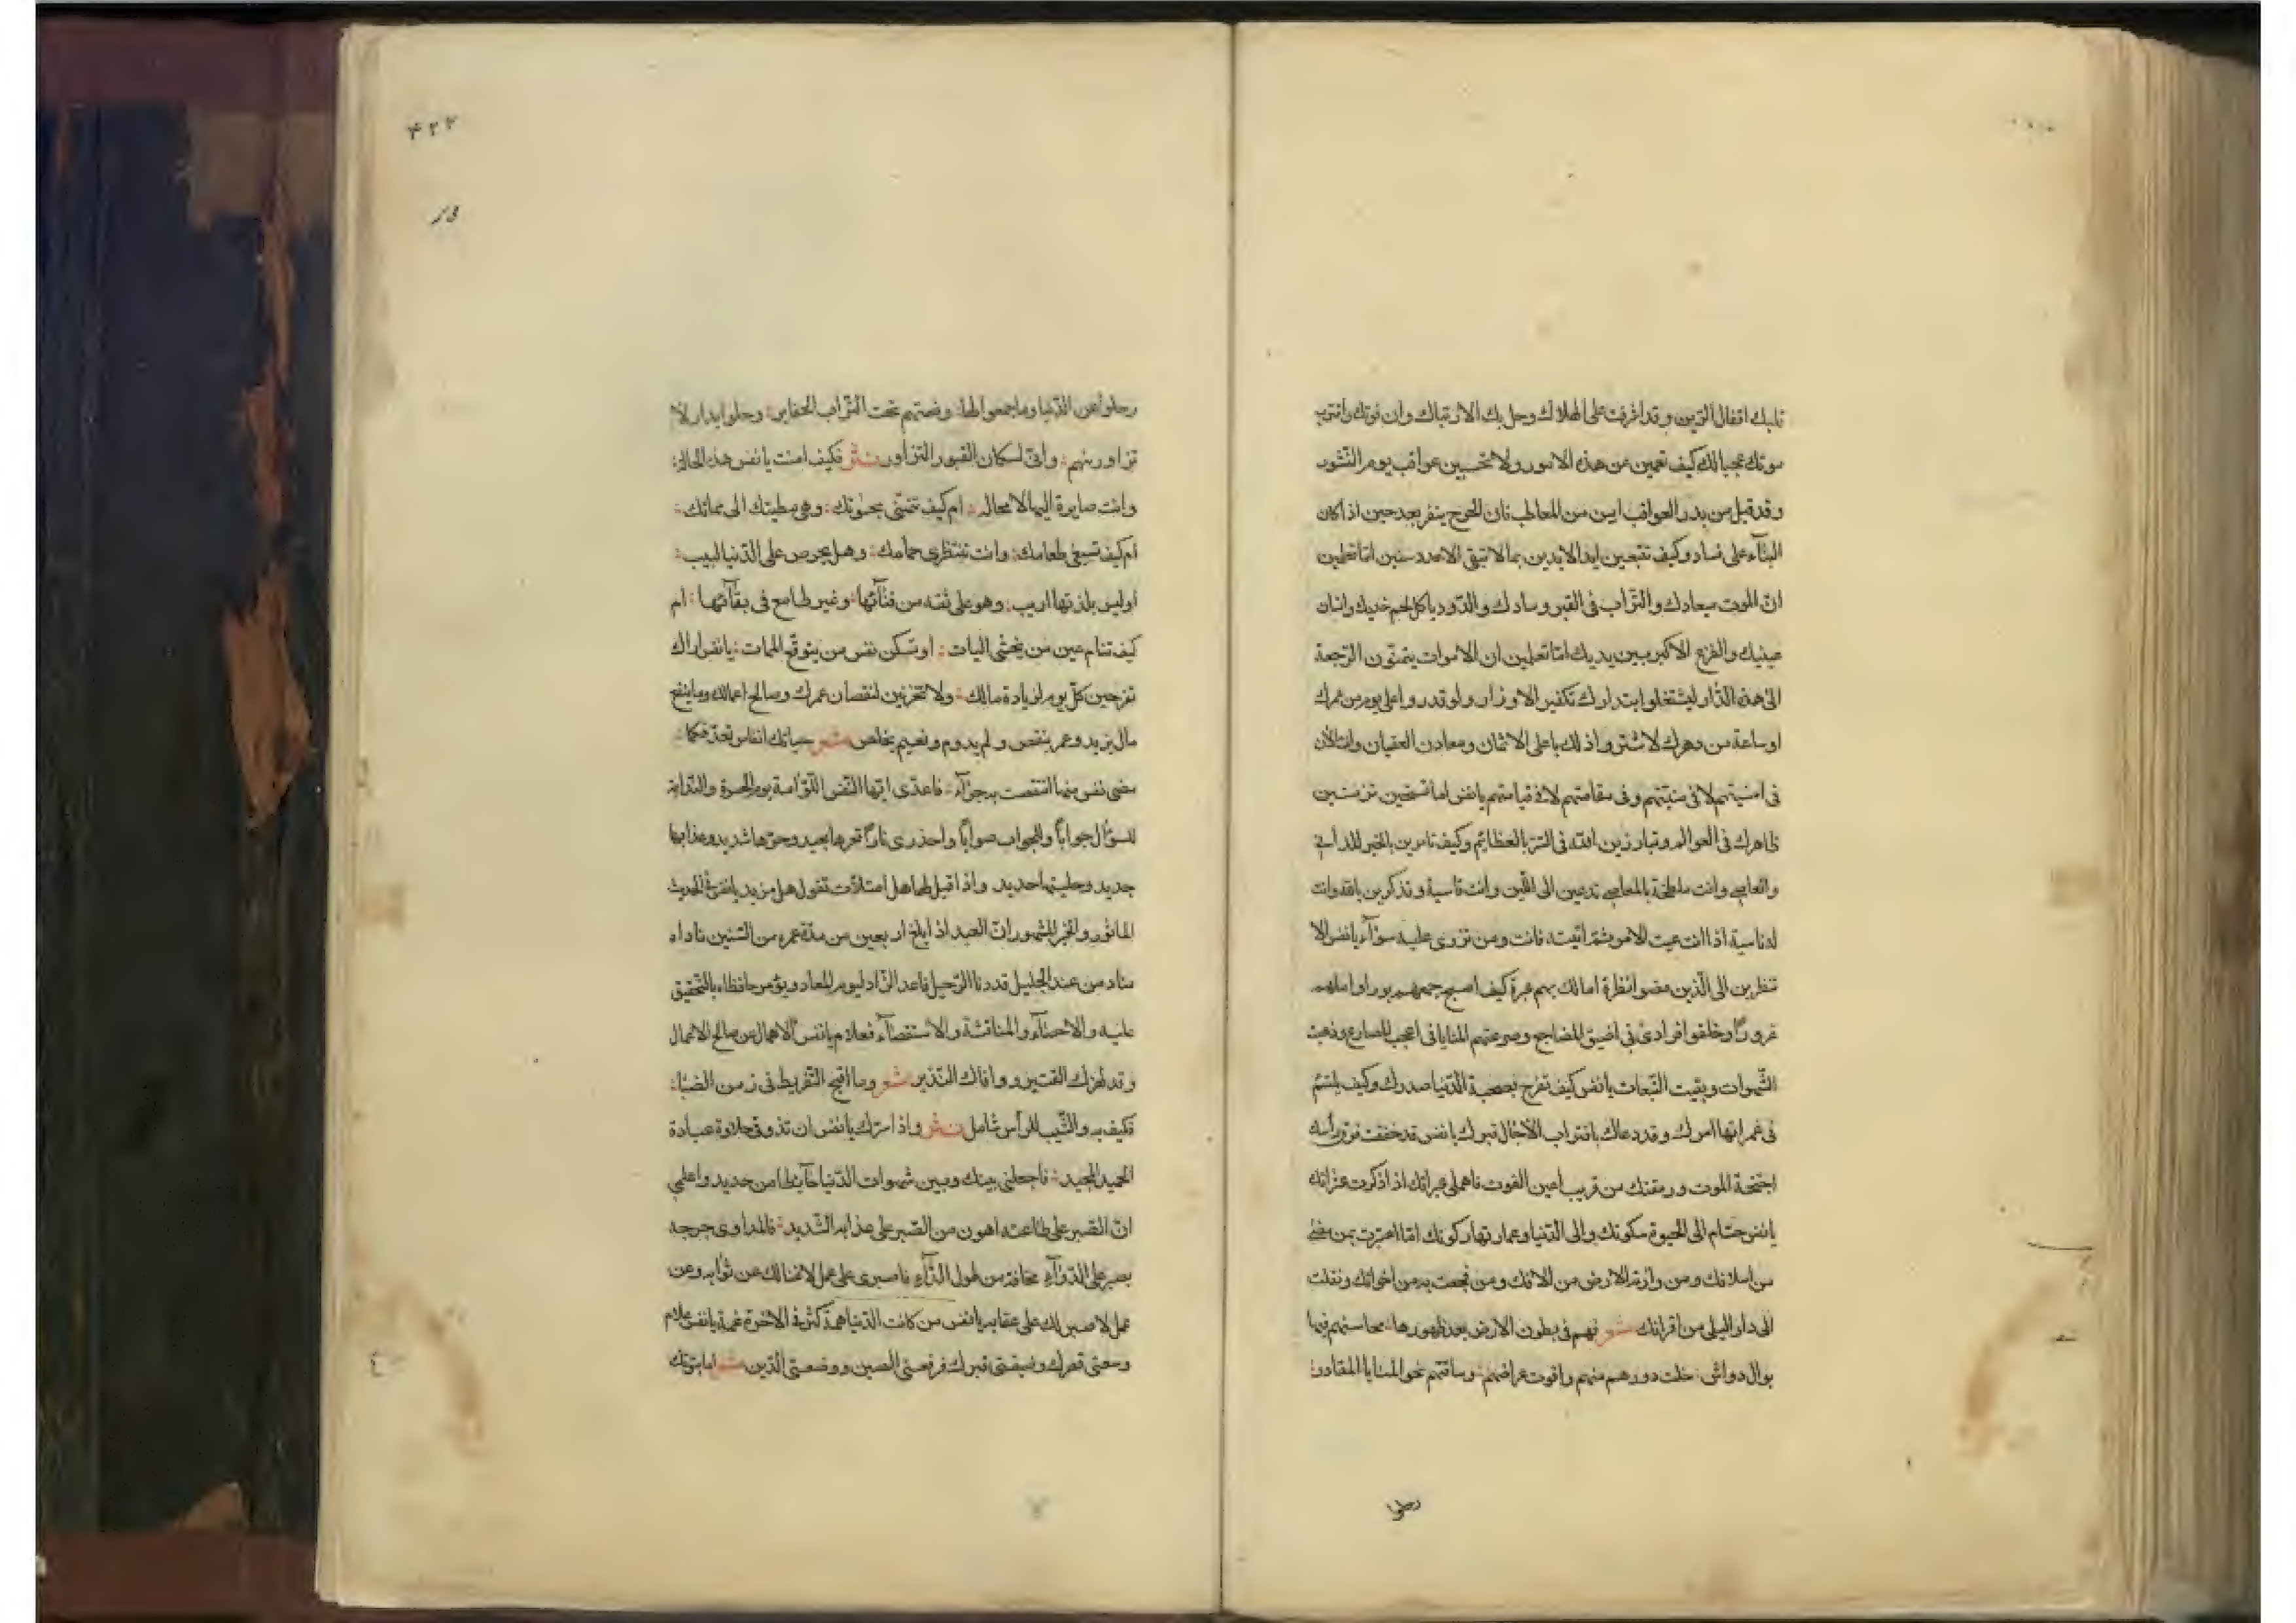 قلبك اقفال الرين وقد اشرفت على الهلاك وحل بك الارتباك وان فوتك واقترب
موتك عجبا لك كيف تعمين عن هذه الامور ولا تحسبين عواقب يوم النشور
وقد قيل من بدر العواقب امن من المعاطب فان الجرح ينفر بعد حين اذا كان
البناء على فساد وكيف تتبعين ابد الابدين بما لا تبقى الا عدد سنين اما تعلمين
ان الموت ميعادك والتراب فى القبر وسادك والدود ياكل لحم خديك وانسان
عينيك والفزع الاكبر بين يديك اما تعلمين ان الاموات يتمنون الرجعة
الى هذه الدار ليشتغلوا بتدارك تكفير الاوزار ولو قدروا على يوم من عمرك
او ساعة من دهرك لاشتروا ذلك باعلى الاثمان ومعادن العقيان وانت الان
فى امنيتهم لا فى منيتهم وفى مقامتهم لا فى قيامتهم يا نفس اما تستحين تزينين
ظاهرك فى العوالم وتبارزين الله فى السر بالعظائم وكيف تامرين بالخير
وانت ملطخة بالمعاصى تدعين الى اللين وانت قاسية وتذكرين بالله وانت
له ناسية اذا انت عبت الامر ثم اتيته فانت ومن تزرى عليه سواء يا نفس الا
تنظرين الى الذين مضوا نظرة اما لك بهم عبرة كيف اصبح جمعهم بورا واملهم
غرورا وخلفوا فرادى فى اضيق المضاجع وصرعتهم المنايا فى اعجب المصارع وذهبت
الشهوات وبقيت التبعات يا نفس كيف تفرح بصحبة الدنيا صدرك وكيف يلتئم
فى غمراتها امرك وقد دعاك باقتراب الآجال قبرك يا نفس قد خفقت فوق راسك
اجنحة الموت ورمقتك من قريب اعين الفوت فاهملى عبراتك اذا ذكرت عثراتك
يا نفس حتام الى الحيوة سكونك والى الدنيا وعمارتها ركونك اما اعتبرت بمن مضى
من اسلافك ومن وارته الارض من الافك ومن فجعت به من اخوانك ونقلت
الى دار البلى من اقرانك شعر فهم فى بطون الارض بعد ظهورها محاسنهم فيها
بوال دواثر خلت دورهم منهم واقوت عراصهم وساقتهم نحو المنايا المقادر
رحلوا
٤٢٢
رحلوا عن الدنيا وما جمعوا لها وضمتهم تحت التراب الحفاير وحلوا بدار لا
تزاور بينهم وانى لسكان القبور التزاور نثر فكيف امنت يا نفس هذه الحالة
وانت صايرة اليها لا محالة ام كيف تتهنى بحيوتك وهى مطيتك الى مماتك
ام كيف تسيغى طعامك وانت تنتظرى حمامك وهل يحرص على الدنيا لبيب
او ليس بلذتها اريب وهو على ثقة من فنائها وغير طامع فى بقائها ام
كيف تنام عين من يخشى البيات او تسكن نفس من يتوقع الممات يا نفس اراك
تفرحين كل يوم لزيادة مالك ولا تحزنين لنقصان عمرك وصالح اعمالك وما ينفع
مال يزيد وعمر ينقص ولم يدوم ونعيم يخلص شعر حياتك انفاس تعد فكلما
مضى نفس منها انتقصت به جزآء فاعدى ايتها النفس اللوامة يوم الحسرة والندامة
للسؤال جوابا وللجواب صوابا واحذرى نارا قعرها بعيد وحرها شديد وعذابها
جديد وحليتها حديد واذا قيل لها هل امتلأت تقول هل من مزيد يا نفس فى الحديث
المأثور والخبر المشهور ان العبد اذا بلغ اربعين من مدة عمره من السنين ناداه
مناد من عند الجليل قد دنا الرحيل فاعد الزاد ليوم المعاد ويؤمر حافظاه بالتحقيق
عليه والاحصآء والمناقشة والاستقصآء فعلام يا نفس الاهمال عن صالح الاعمال
وقد لهزك القتير ووافاك النذير شعر وما اقبح التفريط فى زمن الصبا
فكيف به والشيب للرأس شامل نثر واذا سرك يا نفس ان تذوقى حلاوة عبادة
الحميد المجيد فاجعلى بينك وبين شهوات الدنيا حآيطا من حديد واعلمى
ان الصبر على طاعته اهون من الصبر على عذابه الشديد فالمداوى جرحه
يصبر على الدوآء مخافة من طول الدآء فاصبرى على عمل لا غنا لك عن ثوابه وعن
عمل لا صبر لك على عقابه يا نفس من كانت الدنيا همه كثر فى الاخرة غمه يا نفس علام
وسعتى قصرك وضيقتى قبرك فرفعتى الطين ووضعتى الدين شعر اما بيوتك